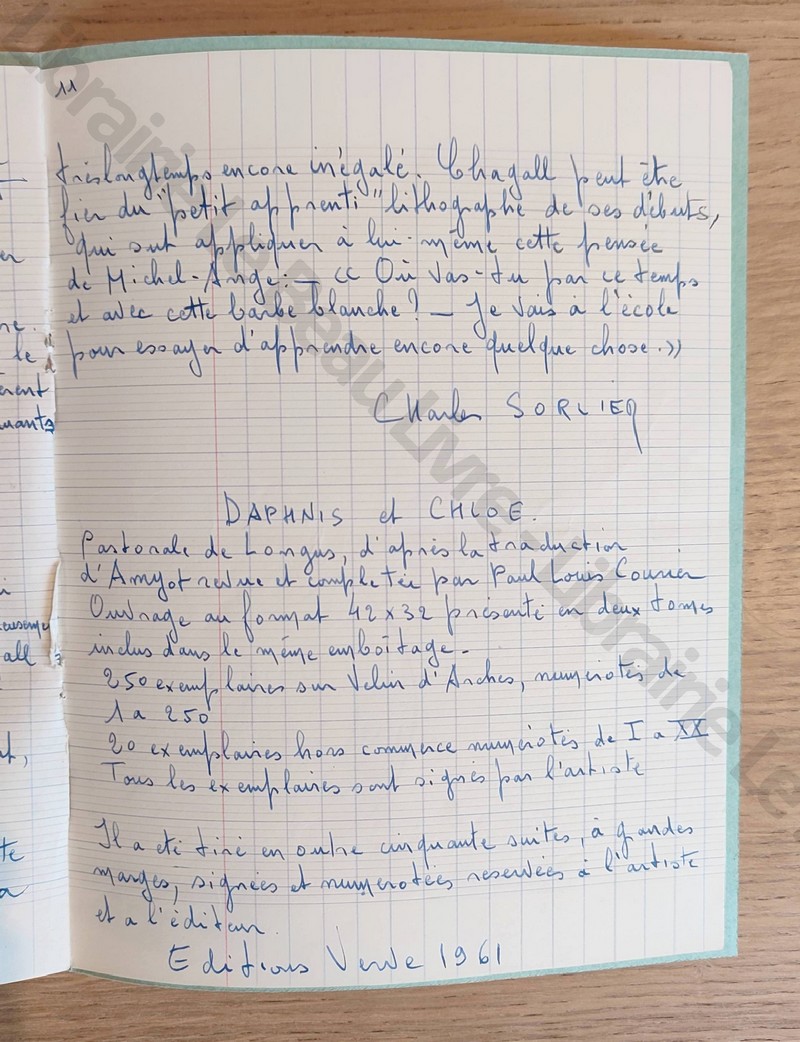 11
très longtemps encore inégalé. Chagall peut être
fier du "petit apprenti" lithographe de ses débuts,
qui sut appliquer à lui-même cette pensée
de Michel-Ange : — << Où vas-tu par ce temps
et avec cette barbe blanche ? — Je vais à l'école
pour essayer d'apprendre encore quelque chose. >>
Charles SORLIER
DAPHNIS et CHLOE.
Pastorale de Longus, d'après la traduction
d'Amyot revue et completée par Paul Louis Courier
Ouvrage au format 42 x 32 présenté en deux tomes
inclus dans le même emboîtage.
250 exemplaires sur Velin d'Arches, numérotés de
1 a 250
20 exemplaires hors commerce numérotés de I a XX
Tous les exemplaires sont signés par l'artiste
Il a été tiré en outre cinquante suites, à grandes
marges, signées et numerotées reservées à l'artiste
et a l'éditeur.
Editions Verve 1961
Librairie Le Beau Livre - Librairie Le